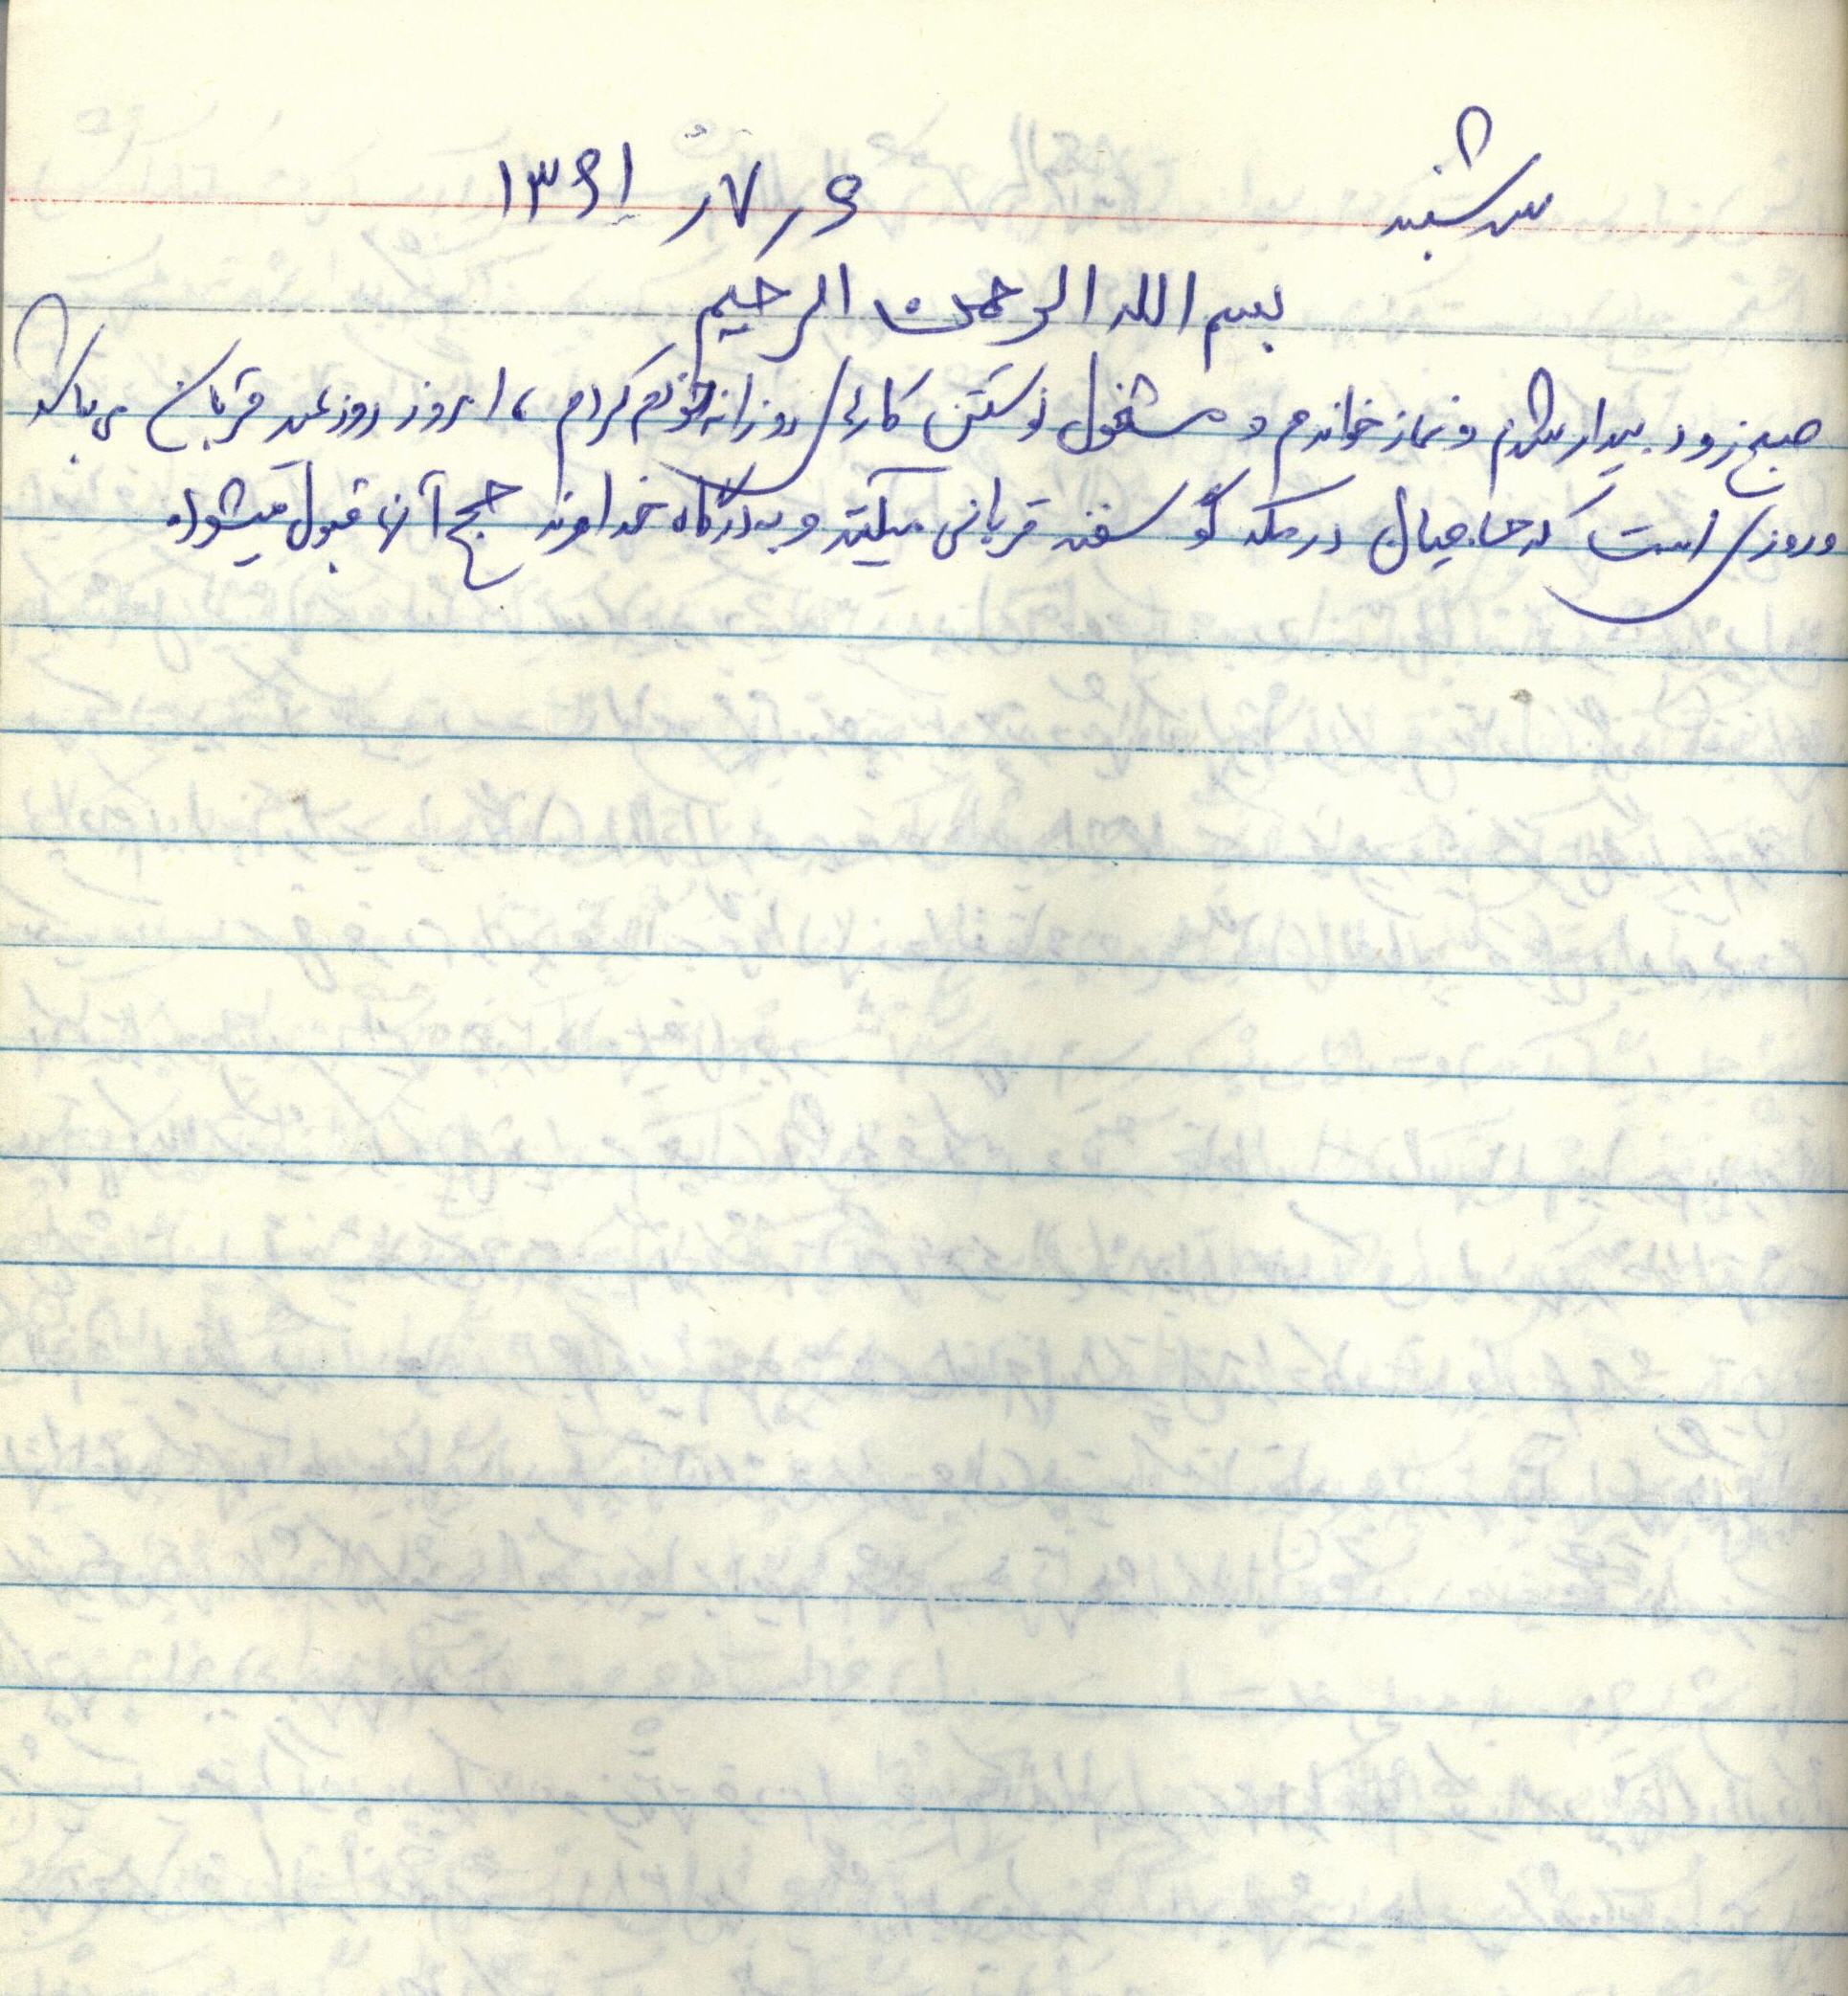 سه شنبه ۶ر۷ر ۱۳۶۱
بسم الله الرحمن الرحیم
صبح زود بیدار شدم و نماز خواندم و مشغول نوشتن کارهای روزانه خودم کردم، امروز روز عید قربان می باشد
و روزی است که حاجیان در مکه گوسفند قربانی میکنند و به درگاه خداوند حج آنها قبول میشود.